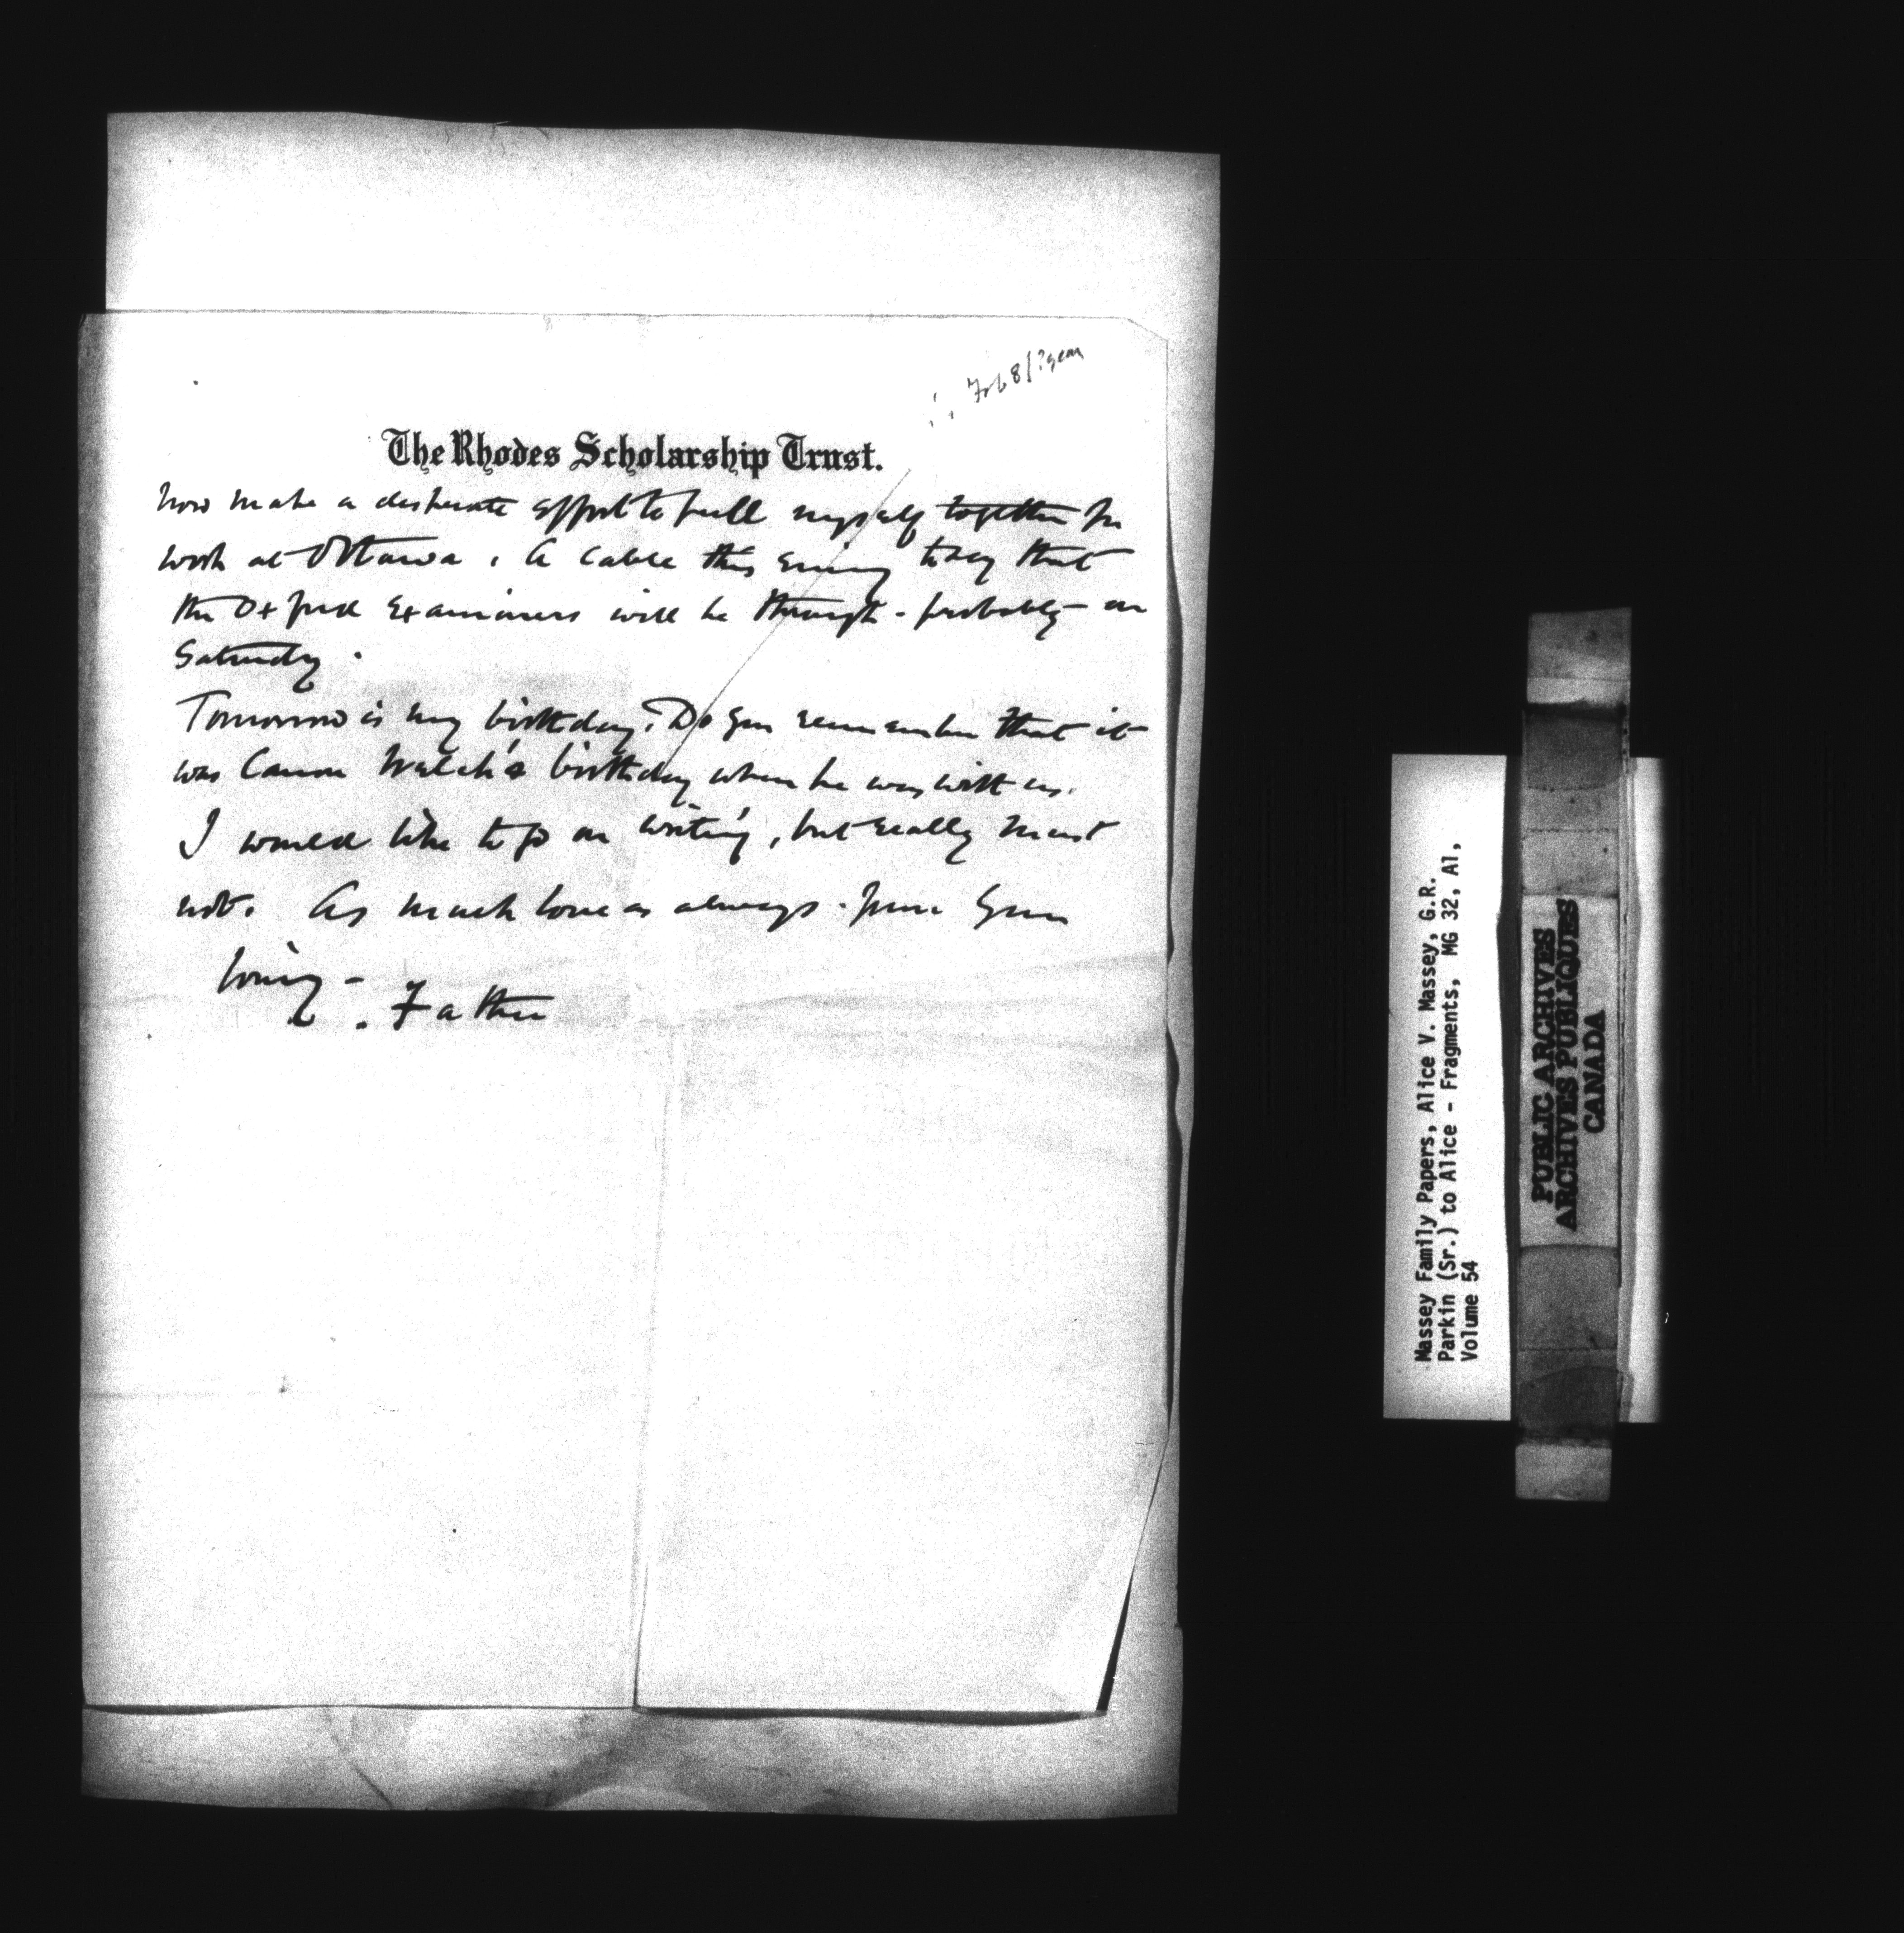 ∴ Feb 8/?year
The Rhodes Scholarship Trust.
now make a desperate effort to pull myself together for
work at Ottawa. A cable this evening to say that
the Oxford Examiners will be through - probably - on
Saturday.
Tomorrow is my birthday. Do you remember that it
was Canon Welch's birthday when he was with us.
I would like to go on writing, but really must
not. As much love as always from your
loving -
Father
Massey Family Papers, Alice V. Massey, G.R.
Parkin (Sr.) to Alice - Fragments, MG 32, A1,
Volume 54
PUBLIC ARCHIVES
ARCHIVES PUBLIQUES
CANADA